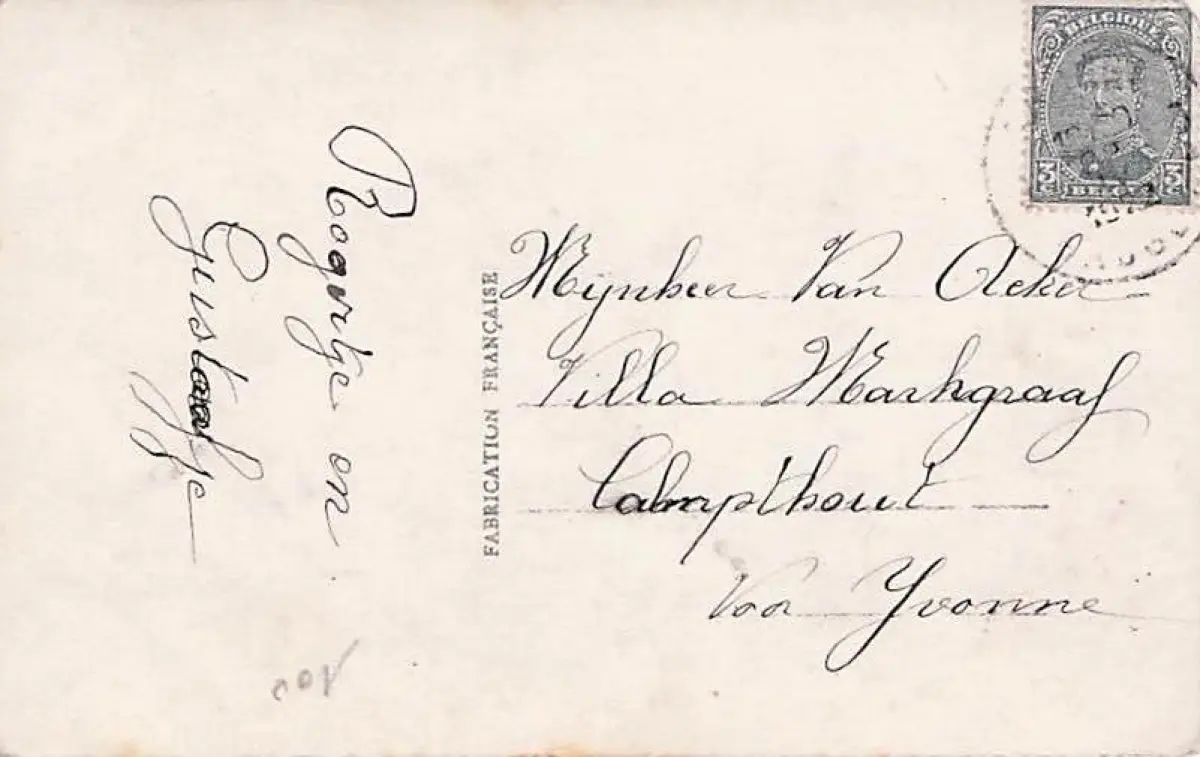 Rogertje en
Gustaafje
FABRICATION FRANÇAISE
BELGIQUE
3c
3c
BELGIË
Mijnheer Van Acker
Villa Markgraaf
Calmpthout
Voor Yvonne
100